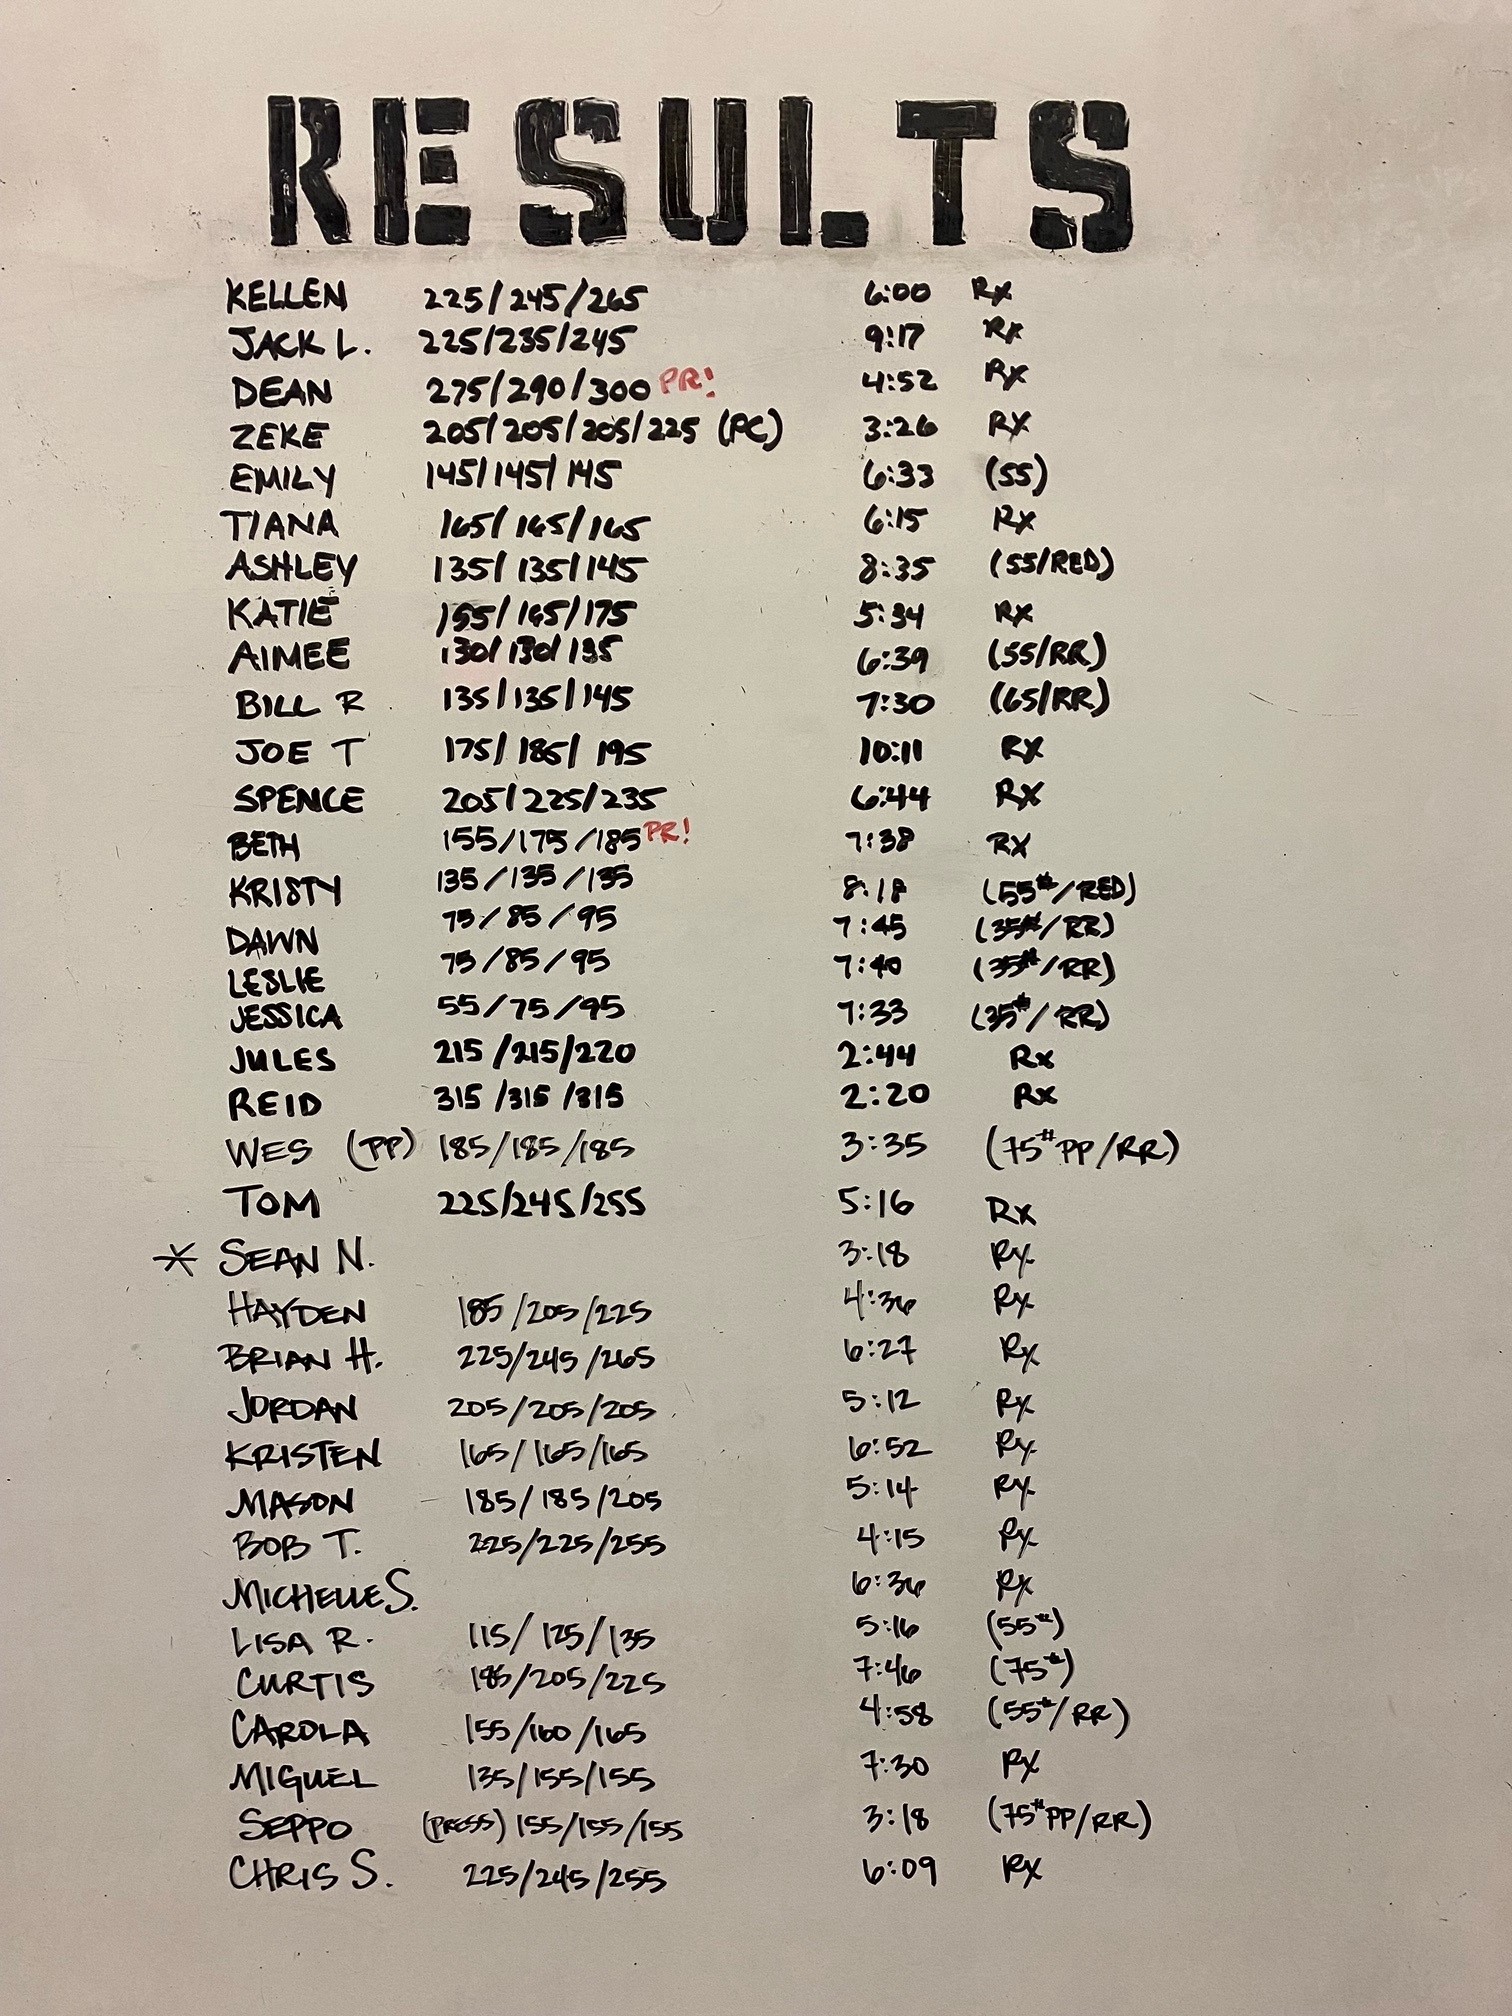 RESULTS
KELLEN 225/245/265 6:00 Rx
JACK L. 225/235/245 9:17 Rx
DEAN 275/290/300 PR! 4:52 Rx
ZEKE 205/205/205/225 (PC) 3:26 Rx
EMILY 145/145/145 6:33 (55)
TIANA 165/165/165 6:15 Rx
ASHLEY 135/135/145 8:35 (55/RED)
KATIE 155/165/175 5:34 Rx
AIMEE 130/130/135 6:39 (55/RR)
BILL R 135/135/145 7:30 (65/RR)
JOE T 175/185/195 10:11 Rx
SPENCE 205/225/235 6:44 Rx
BETH 155/175/185 PR! 7:38 Rx
KRISTY 135/135/135 8:18 (55#/RED)
DAWN 75/85/95 7:45 (35#/RR)
LESLIE 75/85/95 7:40 (35#/RR)
JESSICA 55/75/95 7:33 (35#/RR)
JULES 215/215/220 2:44 Rx
REID 315/315/315 2:20 Rx
WES (PP) 185/185/185 3:35 (75#PP/RR)
TOM 225/245/255 5:16 Rx
* SEAN N. 3:18 Rx
HAYDEN 185/205/225 4:36 Rx
BRIAN H. 225/245/265 6:27 Rx
JORDAN 205/205/205 5:12 Rx
KRISTEN 165/165/165 6:52 Rx
MASON 185/185/205 5:14 Rx
BOB T. 225/225/255 4:15 Rx
MICHELLE S. 6:36 Rx
LISA R. 115/125/135 5:16 (55#)
CURTIS 185/205/225 7:46 (75#)
CAROLA 155/160/165 4:58 (55#/RR)
MIGUEL 135/155/155 7:30 Rx
SEPPO (PRESS) 155/155/155 3:18 (75#PP/RR)
CHRIS S. 225/245/255 6:09 Rx